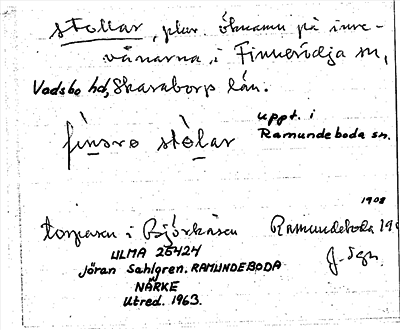 stollar, plur. öknamn på inne-
vånarna i Finnerödja sn,
Vadsbo hd, Skaraborgs län.
uppt. i
Ramundeboda sn.
finsro stòlar
1908
torparen i Björkåsen Ramundeboda 190
ULMA 25424
Jöran Sahlgren. RAMUNDEBODA
NÄRKE
Utred. 1963.
J. Sgn.